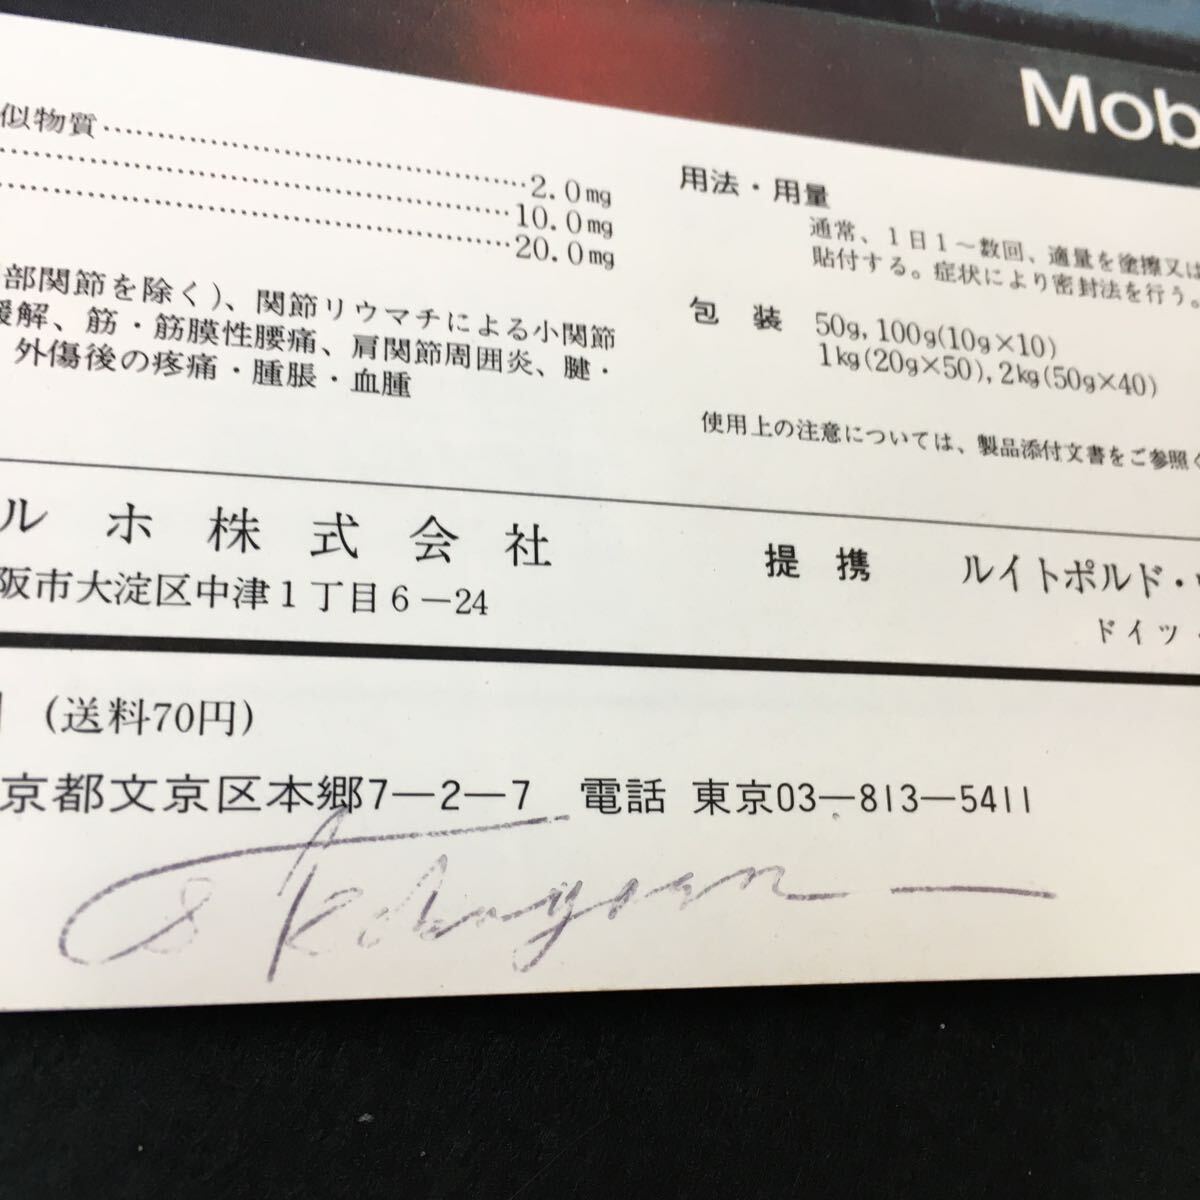 Mob
似物質……………………………………2.0mg
……………………………………10.0mg
……………………………………20.0mg
部関節を除く)、関節リウマチによる小関節
緩解、筋・筋膜性腰痛、肩関節周囲炎、腱・
外傷後の疼痛・腫脹・血腫
用法・用量
通常、1日1〜数回、適量を塗擦又は
貼付する。症状により密封法を行う。
包装 50g, 100g(10g×10)
1kg(20g×50), 2kg(50g×40)
使用上の注意については、製品添付文書をご参照く
ルホ株式会社
阪市大淀区中津1丁目6-24
提携 ルイトポルド・
ドイツ
(送料70円)
京都文京区本郷7-2-7 電話 東京03-813-5411